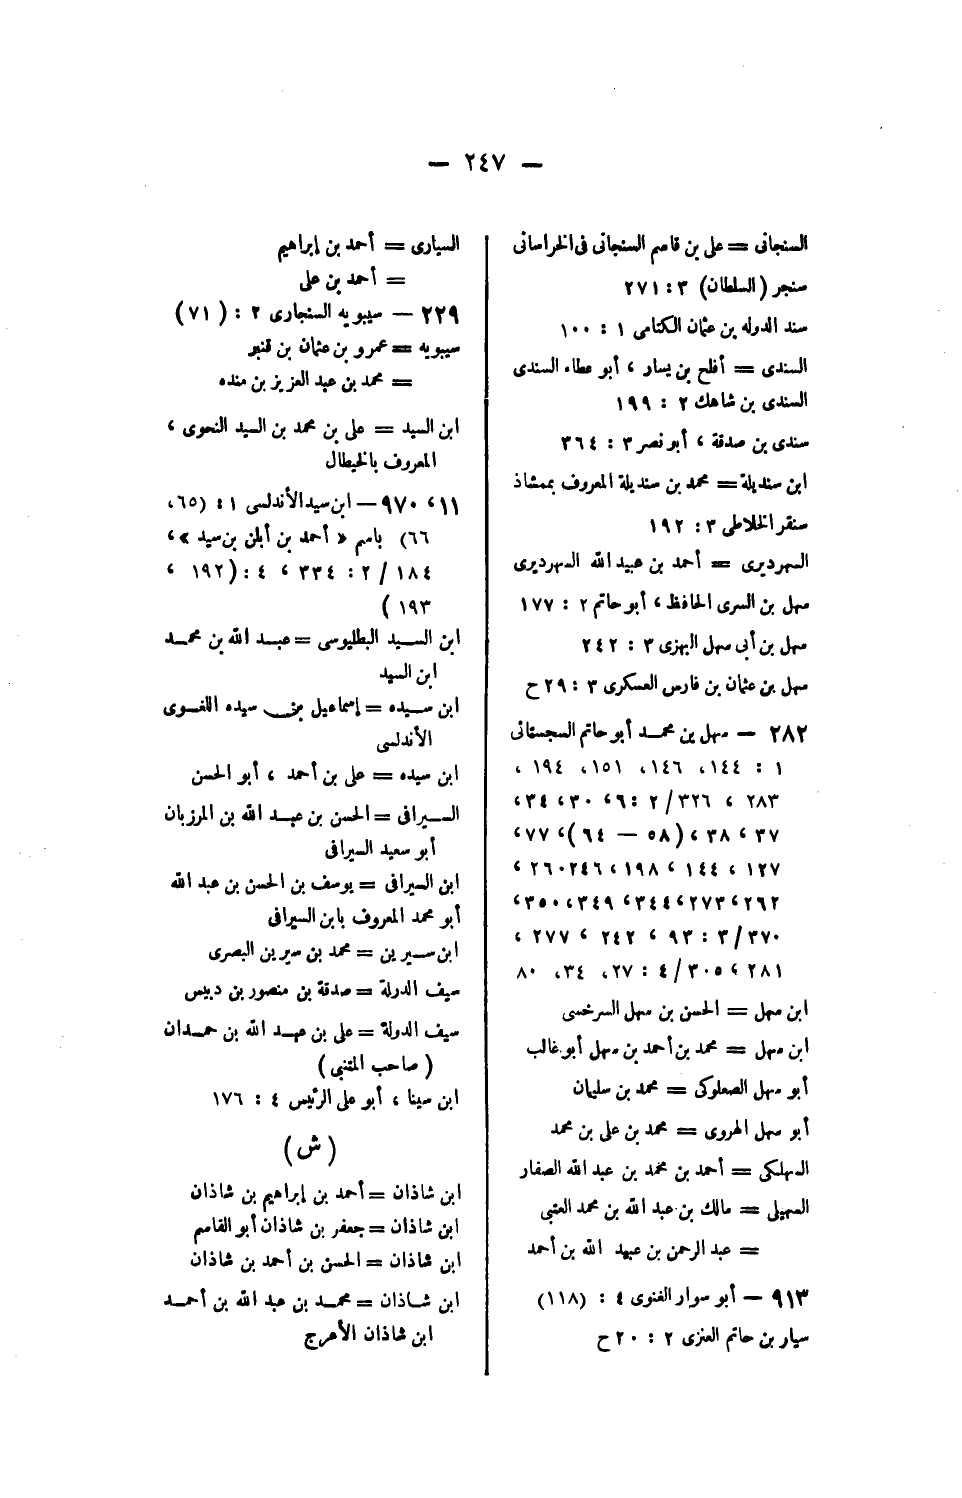 — ٢٤٧ —
السنجانى = على بن قاسم السنجانى فى الخراسانى
سنجر (السلطان) ٣ : ٢٧١
سند الدوله بن عثمان الكتامى ١ : ١٠٠
السندى = أفلح بن يسار ، أبو عطاء السندى
السندى بن شاهك ٢ : ١٩٩
سندى بن صدقة ، أبو نصر ٣ : ٣٦٤
ابن سنديلة = محمد بن سنديلة المعروف بممشاذ
سنقر الخلاطى ٣ : ١٩٢
السهرديرى = أحمد بن عبيد الله السهرديرى
سهل بن السرى الحافظ ، أبو حاتم ٢ : ١٧٧
سهل بن أبى سهل البهزى ٣ : ٢٤٢
سهل بن عثمان بن فارس العسكرى ٣ : ٢٩ ح
٢٨٢ — سهل بن محمد أبو حاتم السجستانى
١ : ١٤٤ ، ١٤٦ ، ١٥١ ، ١٩٤ ،
٢٨٣ ، ٣٢٦ / ٢ : ٦ ، ٣٠ ، ٣٤ ،
٣٧ ، ٣٨ ، (٥٨ — ٦٤) ، ٧٧ ،
١٢٧ ، ١٤٤ ، ١٩٨ ، ٢٤٦ ٢٦٠ ،
٢٦٢ ، ٢٧٣ ، ٣٤٤ ، ٣٤٩ ، ٣٥٠ ،
٣٧٠ / ٣ : ٩٣ ، ٢٤٢ ، ٢٧٧ ،
٢٨١ ، ٣٠٥ / ٤ : ٢٧ ، ٣٤ ، ٨٠
ابن سهل = الحسن بن سهل السرخسى
ابن سهل = محمد بن أحمد بن سهل أبو غالب
أبو سهل الصعلوكى = محمد بن سليمان
أبو سهل الهروى = محمد بن على بن محمد
السهلكى = أحمد بن محمد بن عبد الله الصفار
السهيلى = مالك بن عبد الله بن محمد العتبى
= عبد الرحمن بن عبيد الله بن أحمد
٩١٣ — أبو سوار الغنوى ٤ : (١١٨)
سيار بن حاتم العنزى ٢ : ٢٠ ح
السيارى = أحمد بن إبراهيم
= أحمد بن على
٢٢٩ — سيبويه السنجارى ٢ : (٧١)
سيبويه = عمرو بن عثمان بن قنبر
= محمد بن عبد العزيز بن منده
ابن السيد = على بن محمد بن السيد النحوى ،
المعروف بالخيطال
١١ ، ٩٧٠ — ابن سيد الأندلسى ١ : (٦٥ ،
٦٦) باسم « أحمد بن أبان بن سيد » ،
١٨٤ / ٢ : ٣٣٤ ، ٤ : (١٩٢ ،
١٩٣ )
ابن السيد البطليوسى = عبد الله بن محمد
ابن السيد
ابن سيده = إسماعيل بن سيده اللغوى
الأندلسى
ابن سيده = على بن أحمد ، أبو الحسن
السيرافى = الحسن بن عبد الله بن المرزبان
أبو سعيد السيرافى
ابن السيرافى = يوسف بن الحسن بن عبد الله
أبو محمد المعروف بابن السيرافى
ابن سيرين = محمد بن سيرين البصرى
سيف الدولة = صدقة بن منصور بن دبيس
سيف الدولة = على بن عبد الله بن حمدان
( صاحب المتنبى )
ابن سينا ، أبو على الرئيس ٤ : ١٧٦
( ش )
ابن شاذان = أحمد بن إبراهيم بن شاذان
ابن شاذان = جعفر بن شاذان أبو القاسم
ابن شاذان = الحسن بن أحمد بن شاذان
ابن شاذان = محمد بن عبد الله بن أحمد
ابن شاذان الأعرج